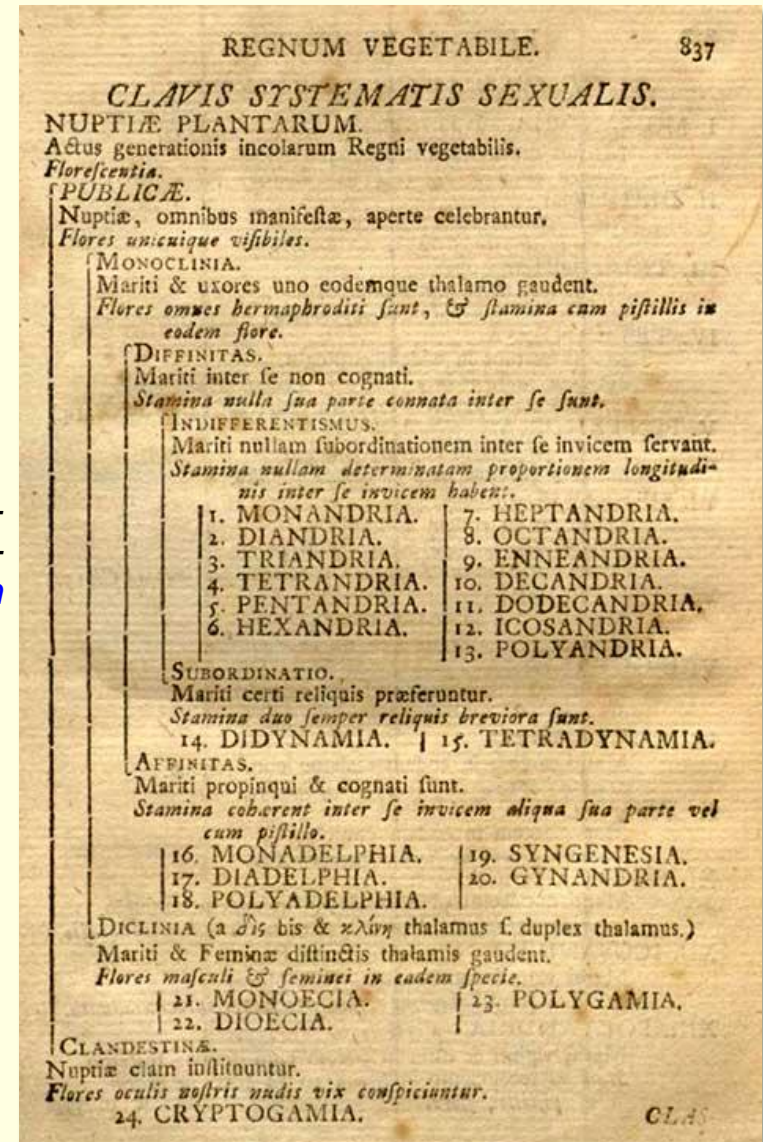 REGNUM VEGETABILE. 837
CLAVIS SYSTEMATIS SEXUALIS.
NUPTIÆ PLANTARUM.
Actus generationis incolarum Regni vegetabilis.
Floreſcentia.
PUBLICÆ.
Nuptiæ, omnibus manifeſtæ, aperte celebrantur.
Flores unicuique viſibiles.
MONOCLINIA.
Mariti & uxores uno eodemque thalamo gaudent.
Flores omnes hermaphroditi ſunt, & ſtamina cum piſtillis in
eodem flore.
DIFFINITAS.
Mariti inter ſe non cognati.
Stamina nulla ſua parte connata inter ſe ſunt.
INDIFFERENTISMUS.
Mariti nullam ſubordinationem inter ſe invicem ſervant.
Stamina nullam determinatam proportionem longitudi-
nis inter ſe invicem habent.
1. MONANDRIA. 7. HEPTANDRIA.
2. DIANDRIA. 8. OCTANDRIA.
3. TRIANDRIA. 9. ENNEANDRIA.
4. TETRANDRIA. 10. DECANDRIA.
5. PENTANDRIA. 11. DODECANDRIA.
6. HEXANDRIA. 12. ICOSANDRIA.
13. POLYANDRIA.
SUBORDINATIO.
Mariti certi reliquis præferuntur.
Stamina duo ſemper reliquis breviora ſunt.
14. DIDYNAMIA. 15. TETRADYNAMIA.
AFFINITAS.
Mariti propinqui & cognati ſunt.
Stamina cohærent inter ſe invicem aliqua ſua parte vel
cum piſtillo.
16. MONADELPHIA. 19. SYNGENESIA.
17. DIADELPHIA. 20. GYNANDRIA.
18. POLYADELPHIA.
DICLINIA (a δὶς bis & κλίνη thalamus ſ. duplex thalamus.)
Mariti & Feminæ diſtinctis thalamis gaudent.
Flores maſculi & feminei in eadem ſpecie.
21. MONOECIA. 23. POLYGAMIA.
22. DIOECIA.
CLANDESTINÆ.
Nuptiæ clam inſtituuntur.
Flores oculis noſtris nudis vix conſpiciuntur.
24. CRYPTOGAMIA. CLAS